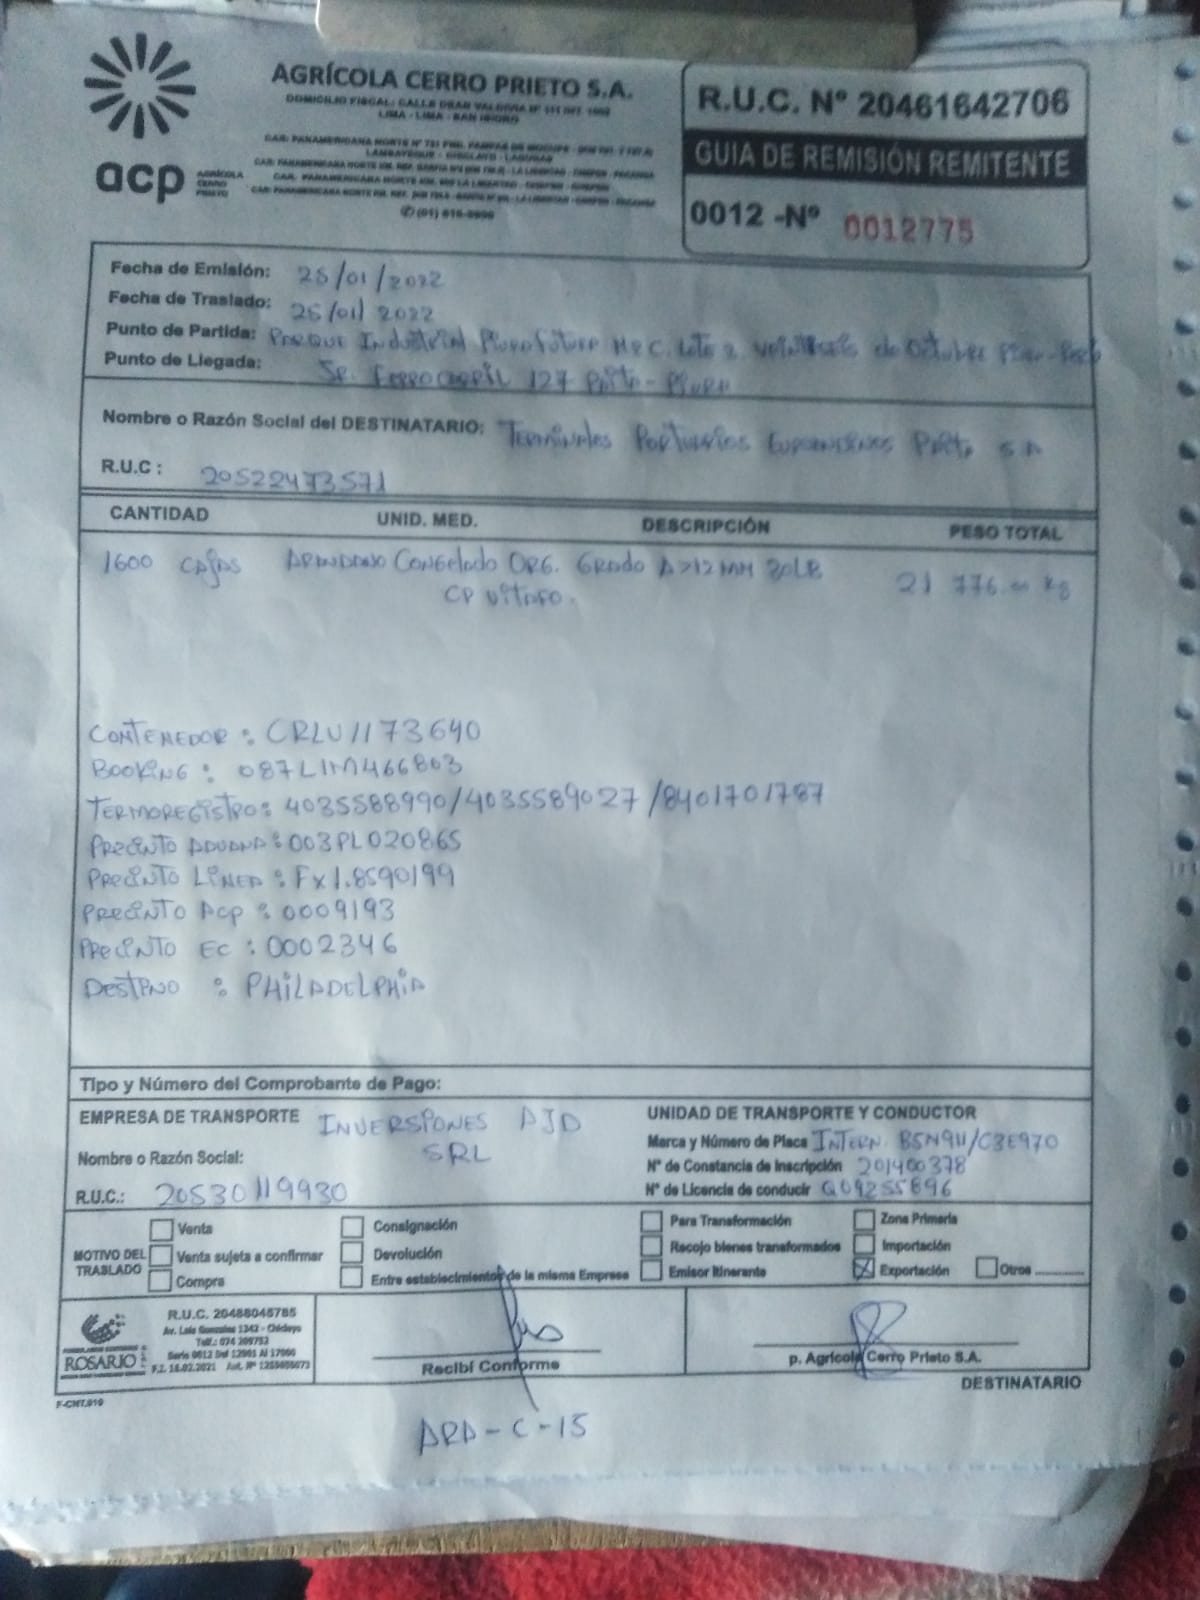 AGRÍCOLA CERRO PRIETO S.A.
DOMICILIO FISCAL: CALLE DEAN VALDIVIA N° 111 INT.
LIMA - LIMA - SAN ISIDRO
CAR. PANAMERICANA NORTE
LAMBAYEQUE - CHICLAYO - LAGUNAS
acp AGRÍCOLA CERRO PRIETO
R.U.C. N° 20461642706
GUIA DE REMISIÓN REMITENTE
0012 -N° 0012775
Fecha de Emisión: 25/01/2022
Fecha de Traslado: 25/01/2022
Punto de Partida: Parque Industrial Piura Futura Mz C. Lote 2. Veintiseis de Octubre Piura-
Punto de Llegada: Jr. Ferrocarril 127 Paita - Piura
Nombre o Razón Social del DESTINATARIO: Terminales Portuarios Euroandinos Paita S A
R.U.C : 20522473571
CANTIDAD UNID. MED. DESCRIPCIÓN PESO TOTAL
1600 CAJAS ARANDANO Congelado ORG. Grado A >12 MM 30LB 21 776.00 kg
CP Vitafo.
CONTENEDOR : CRLU1173640
BOOKING : 087LIM466803
TERMOREGISTRO: 4035588990/4035589027/8401701787
PRECINTO ADUANA: 003PL020865
PRECINTO LINEA : FX1.8590199
PRECINTO ACP : 0009193
PRECINTO EC : 0002346
DESTINO : PHILADELPHIA
Tipo y Número del Comprobante de Pago:
EMPRESA DE TRANSPORTE INVERSIONES AJD
SRL
Nombre o Razón Social:
R.U.C.: 20530119930
UNIDAD DE TRANSPORTE Y CONDUCTOR
Marca y Número de Placa INTERN. B5N911/C3E970
N° de Constancia de Inscripción 201400378
N° de Licencia de conducir Q09255896
MOTIVO DEL TRASLADO
Venta Consignación Para Transformación Zona Primaria
Venta sujeta a confirmar Devolución Recojo bienes transformados Importación
Compra Entre establecimientos de la misma Empresa Emisor Itinerante Exportación Otros
ROSARIO
R.U.C. 20488045785
Av. Luis Gonzales 1342 - Chiclayo
Telf.: 074 209752
Serie 0012 Del 12501 Al 17000
F.I. 16.02.2021
Recibí Conforme
p. Agrícola Cerro Prieto S.A.
DESTINATARIO
F-CNT.010
ARA-C-15